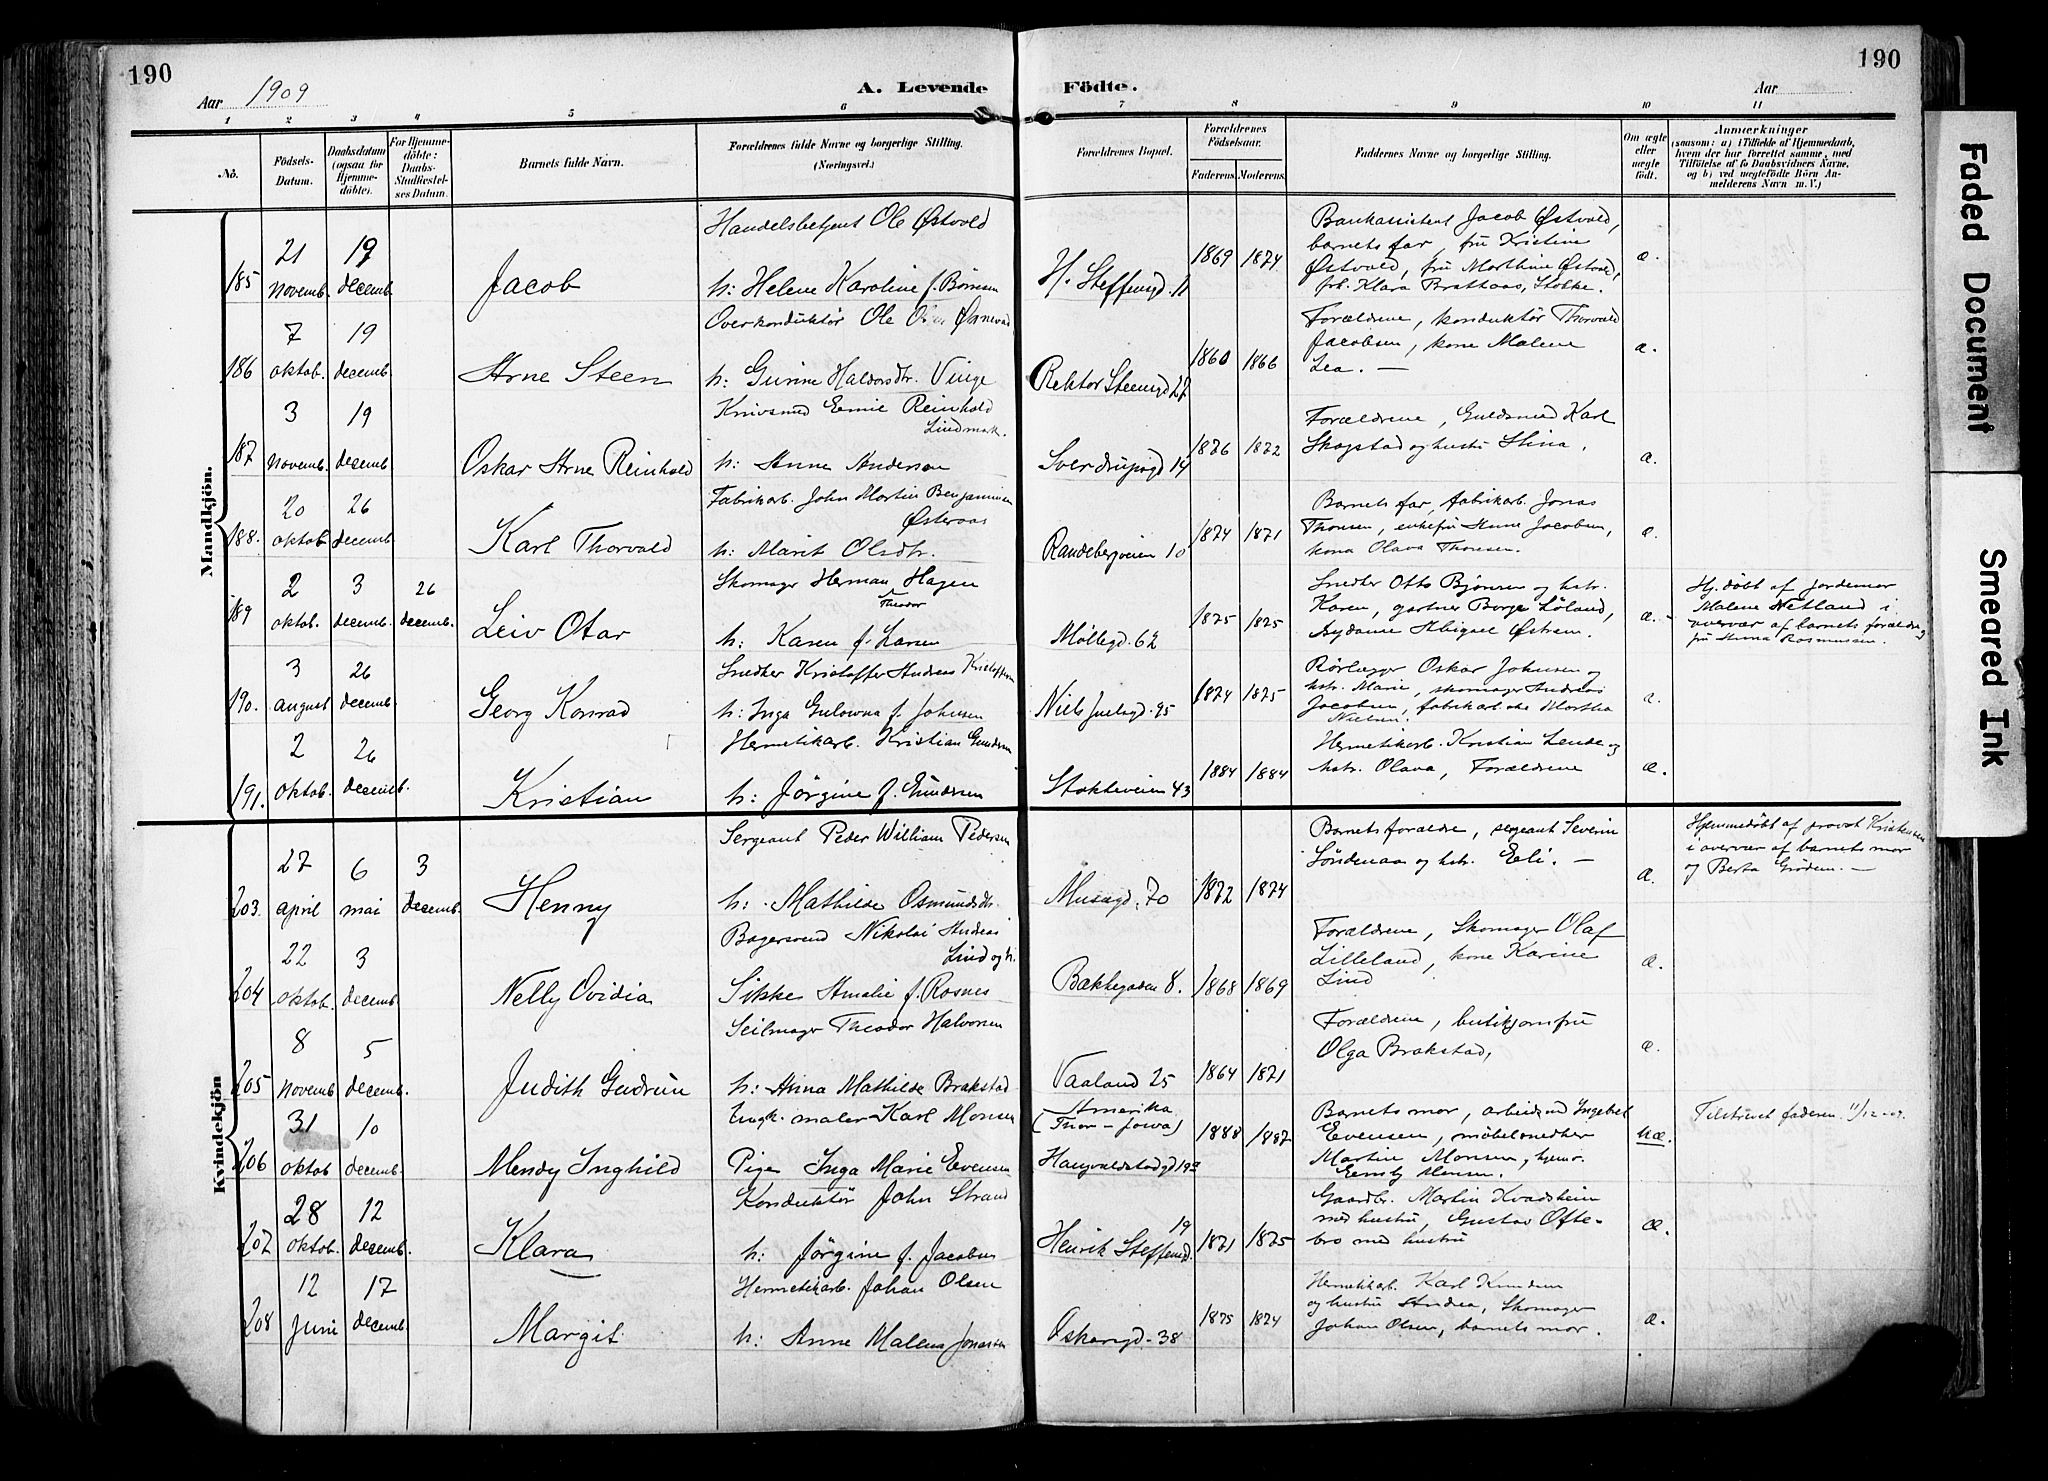 190
190
Aar 1909
A. Levende
Födte.
Aar
1 2 3 4 5 6 7 8 9 10 11
No.
Födsels-Datum.
Daabsdatum (ogsaa for Hjemmedöbte).
For Hjemmedöbte: Daabs-Stadfæstelses Datum.
Barnets fulde Navn.
Forældrenes fulde Navne og borgerlige Stilling. (Næringsvei.)
Forældrenes Bopæl.
Forældrenes Födselsaar.
Faderens. Moderens.
Faddernes Navne og borgerlige Stilling.
Om ægte eller uægte født.
Anmærkninger
(saasom: a) i Tilfælde af Hjemmedaab, hvem der har forrettet samme, med Tilföielse af to Daabsvidners Navne, og b) ved uægtefödte Börn Anmelderens Navn m. V.)
Mandkjön.
185 21 novemb. 19 decemb.
Jacob
Handelsbetjent Ole Østvold
h: Helene Karoline f. Børresen
H. Steffensgd. 11
1869 1874
Bankassistent Jacob Østvold,
barnets far, fru Kristine
Østvold, fru Marthine Østvold,
frk. Klara Brattaas, Stokke.
æ.
186 7 oktob. 19 decemb.
Arne Steen
Overkonduktör Ole
h: Gurine Haldorsdtr. Vinge
Rektor Steensgd 27
1860 1866
Forældrene, konduktör Thorvald
Jacobsen, kone Malene
Lea. —
æ.
187 3 novemb. 19 decemb.
Oskar Arne Reinhold
Knivsmed Emil Reinhold
Lindmark.
h: Anna Andersen
Sverdrupsgd 14
1876 1872
Forældrene, Guldsmed Karl
Skogstad og hustru Stina.
æ.
188. 20 oktob 26 decemb.
Karl Thorvald
Fabrikarb. John Martin Benjaminsen
Østeraas
h: Marit Olsdtr.
Randebergveien 10
1874 1871
Barnets far, fabrikarb. Jonas
Thonsen, enkefru Anne Jacobsen,
kona Olava Thonsen.
æ.
189 2 oktob. 3 decemb. 26 decemb.
Leiv Otar
Skomager Herman Hagen
Theodor
h: Karen f. Larsen
Møllegd. 62
1875 1875
Snedker Otto Bjönsen og hstr.
Karen, gartner Borge Löland,
Østrem.
æ. -
Hj.døbt af jordemor
Malene Netland i
overvær af barnets forældre og
fru Anna Rasmussen.
190. 3 august 26 decemb.
Georg Konrad
Snedker Kristoffer Andreas Kristoffersen
h: Inga Gulowna f. Johnsen
Niels Juelsgd. 95
1874 1875
Rørlægger Oskar Johnsen og
hstr. Marie, skomager Andreas
Jacobsen, fabrikarb.ske Martha
Nielsen.
æ.
191. 2 oktob. 26 decemb.
Kristian
Hermetikarb. Kristian Gundersen
h: Jörgine f. Gundersen
Stokkeveien 43
1884 1884
Hermetikarb. Kristian Lende og
hstr. Olava, Forældrene
æ.
Kvindekjön
203. 27 april 6 mai 3 decemb.
Henny
Sergeant Peder William Pedersen
h: Mathilde Osmundsdtr.
Musægd. 70
1872 1874
Barnets forældre, sergeant Severin
Söndenaa og hstr. Eli. —
æ.
Hjemmedöbt af provst Kristensen
i overvær af barnets mor
og Berta Grödem. —
204 22 oktob. 3 decemb
Nelly Ovidia
Bagersvend Nikolai Andreas
Lind og h.
Sikke Amalie f. Rosnes
Bakkegaden 8.
1868 1869
Forældrene, Skomager Olaf
Lilleland, kone Karine
Lind
æ.
205 8 novemb 5 decemb.
Judith Gudrun
Seilmager Theodor Halvorsen
h: Anna Mathilde Brakstad
Vaaland 25
1864 1871
Forældrene, butikjomfru
Olga Brakstad,
æ.
206 31 oktob 10 decemb.
Mendy Inghild
Ungk. maler Karl Monsen
Pige Inga Marie Evensen
Amerika
(Thor - Jowa)
Haugvaldstadgd 19
1888 1887
Barnets mor, arbeidsmd Ingebret
Evensen, möbelsnedker
Martin Monsen, hjemv.
Monsen.
uæ.
Tilskrevet faderen 11/12-09.
207 28 oktob. 12 decemb.
Klara
Konduktör John Strand
h: Jörgine f. Jacobsen
Henrik Steffensgd. 19
1871 1875
Gaardbr. Martin Kvadsheim
med hustru, Gustav Ofte-
bro med hustru
æ.
208 12 juni 17 decemb.
Margit
Hermetikarb. Johan Olsen
h: Anne Malena Jonassen
Oskarsgd. 38
1875 1874
Hermetikarb. Karl Knudsen
og hustru Andrea, Skomager
Johan Olsen, barnets mor.
æ.
Faded Document
Smeared Ink